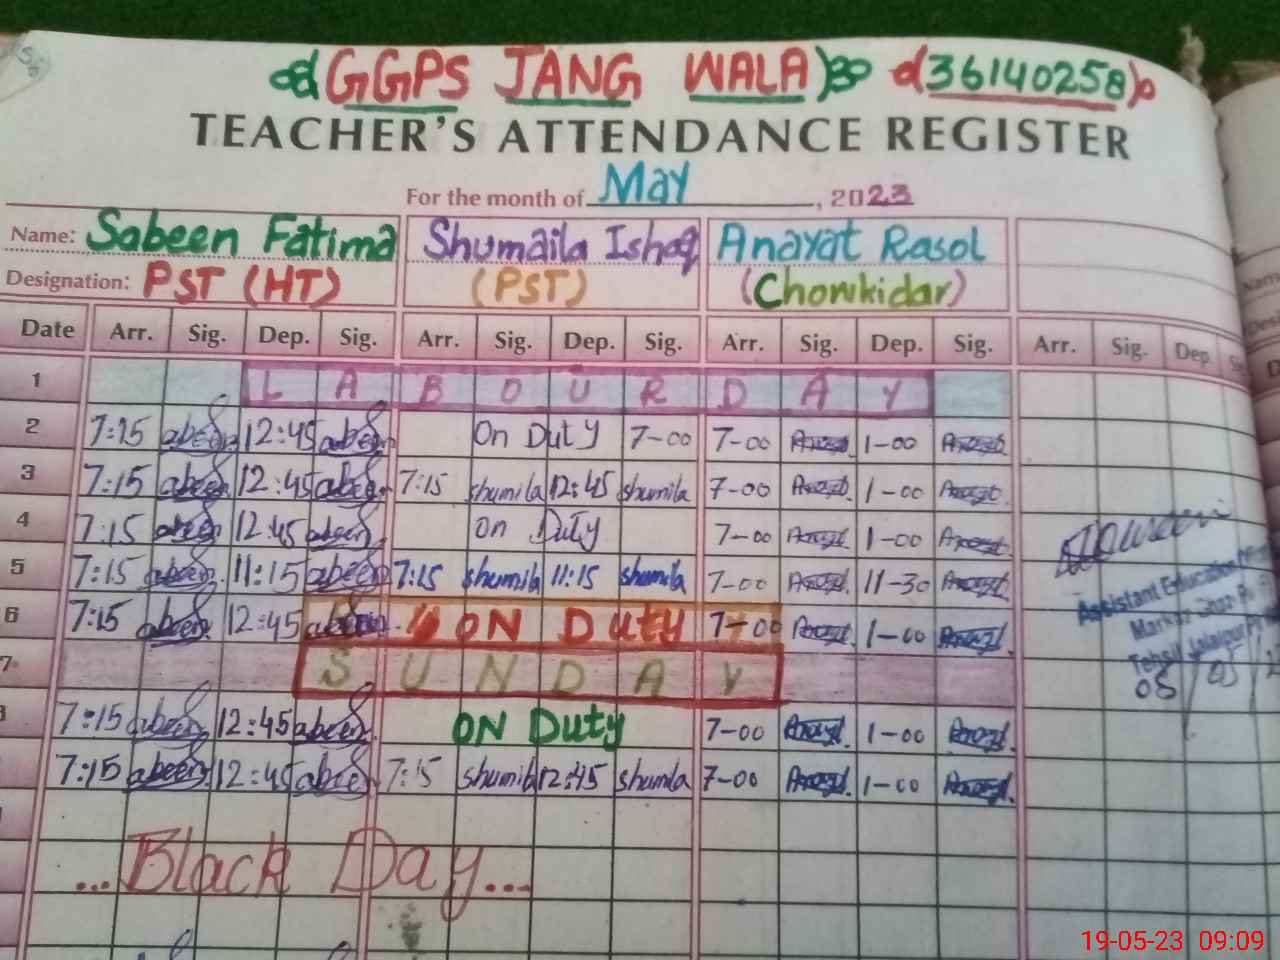 GGPS JANG WALA (36140258)
TEACHER'S ATTENDANCE REGISTER
For the month of May, 2023
Name: Sabeen Fatima Shumaila Ishaq Anayat Rasol
Designation: PST (HT) (PST) (Chowkidar)
Date Arr. Sig. Dep. Sig. Arr. Sig. Dep. Sig. Arr. Sig. Dep. Sig. Arr. Sig. Dep.
1 LABOUR DAY
2 7:15 abeen 12:45 abeen On Duty 7-00 7-00 1-00
3 7:15 abeen 12:45 abeen 7:15 shumila 12:45 shumila 7-00 1-00
4 7:15 abeen 12:45 abeen On Duty 7-00 1-00
5 7:15 abeen 11:15 abeen 7:15 shumila 11:15 shumila 7-00 11-30
6 7:15 abeen 12:45 abeen ON Duty 7-00 1-00
7 SUNDAY
7:15 abeen 12:45 abeen ON Duty 7-00 1-00
7:15 abeen 12:45 abeen 7:15 shumila 12:45 shumila 7-00 1-00
Assistant Education
Tehsil Jalalpur
05/05/
...Black Day...
19-05-23 09:09